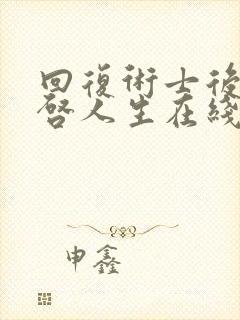 回復術士後
啓人生在綫
申鑫